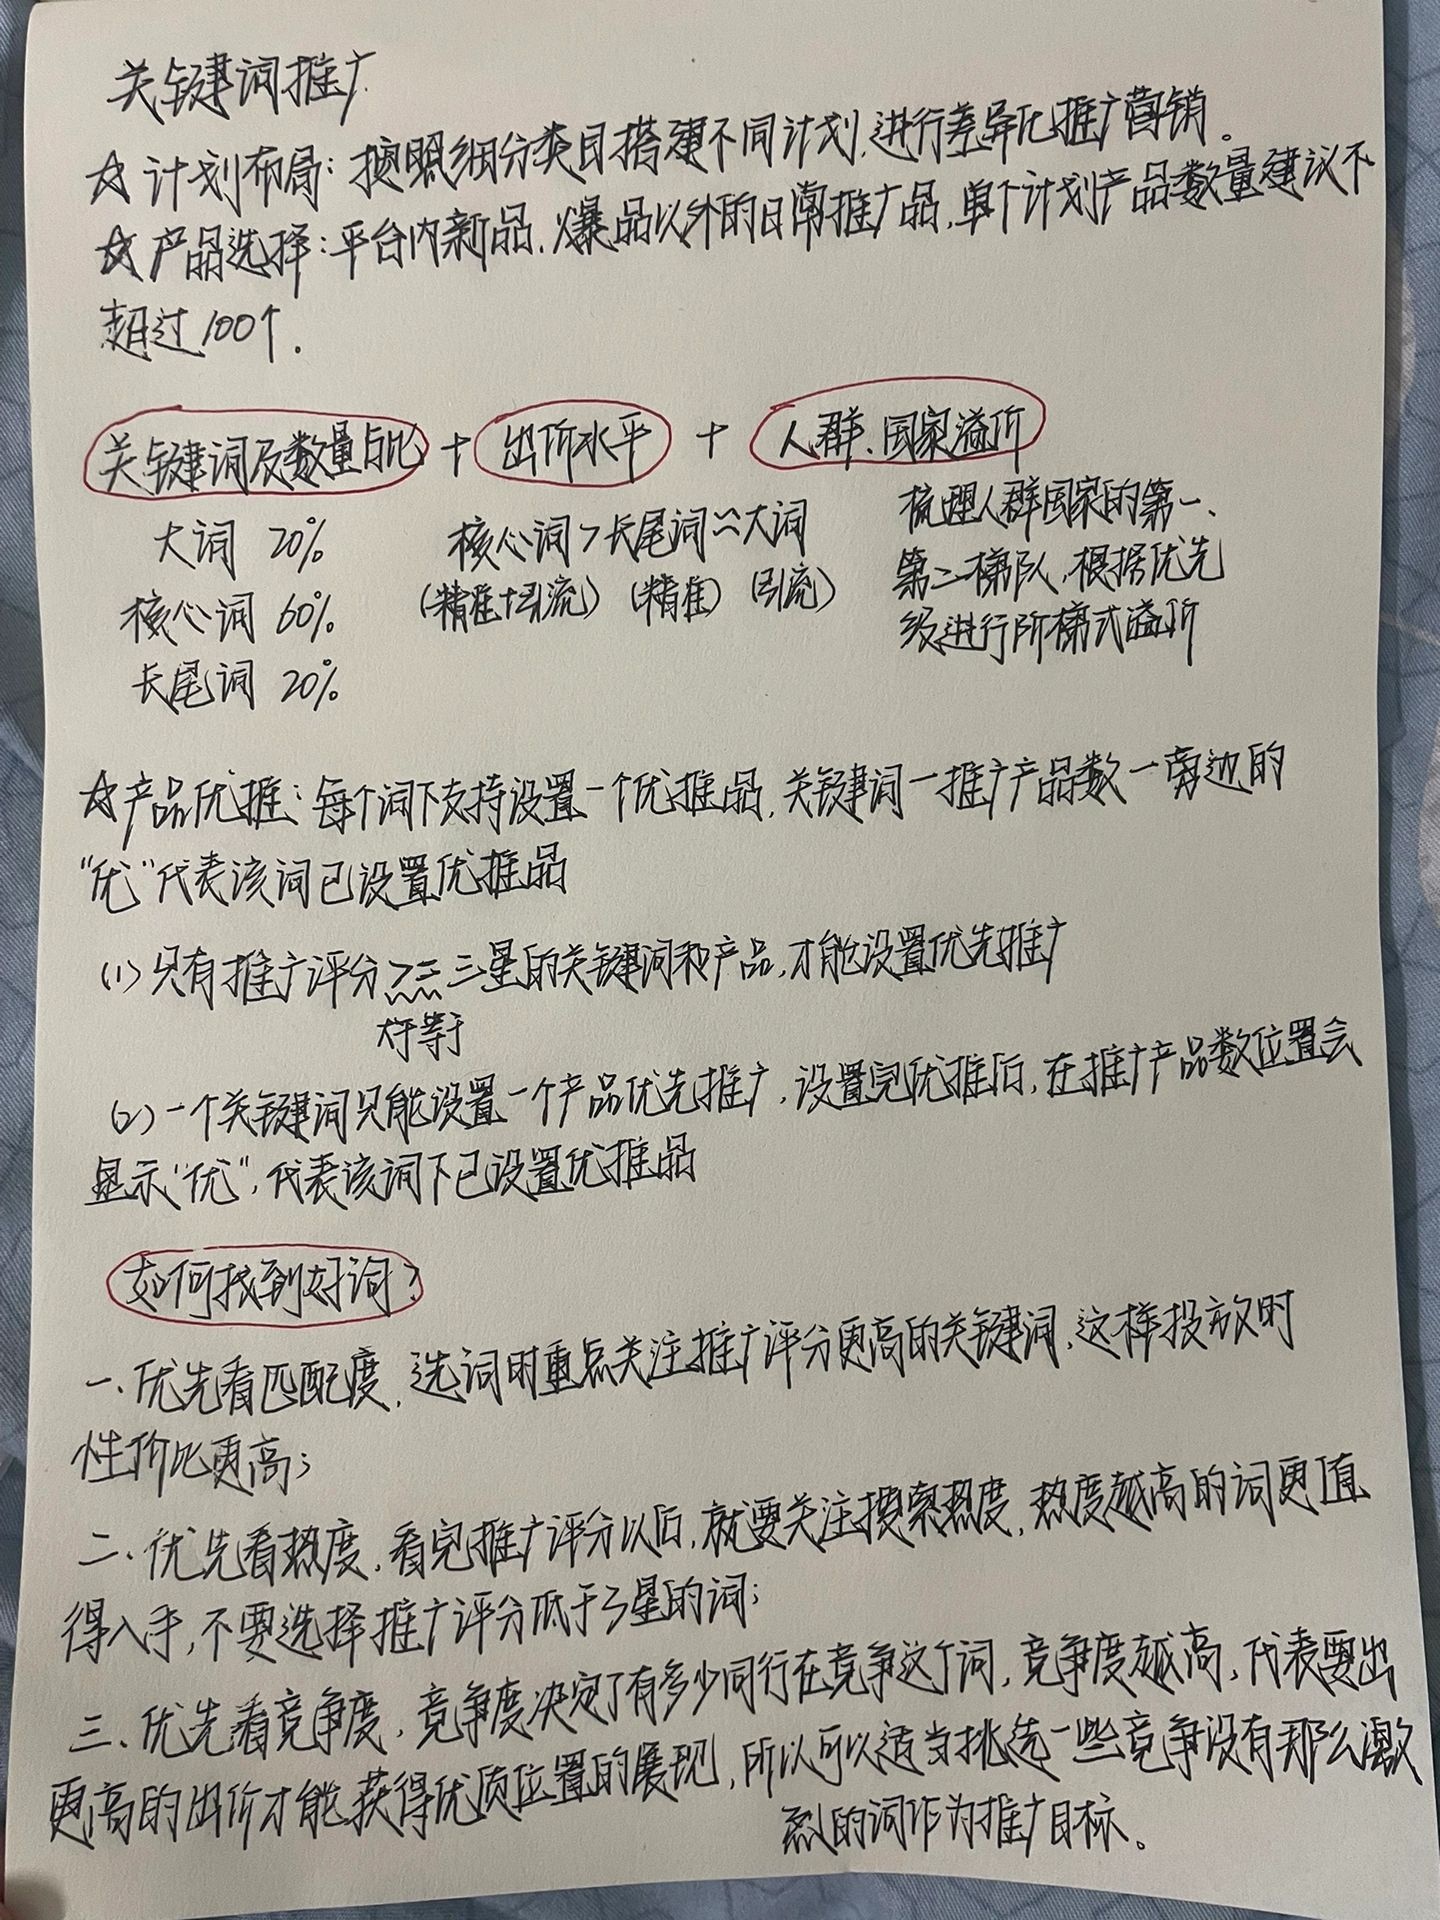 关键词推广
☆ 计划布局：按照细分类目搭建不同计划，进行差异化推广营销。
☆ 产品选择：平台内新品、爆品以外的日常推广品，单个计划产品数量建议不
超过100个.
关键词及数量占比 + 出价水平 + 人群、国家溢价
大词 20% 核心词>长尾词≈大词 梳理人群国家的第一、
核心词 60% (精准+引流) (精准) (引流) 第二梯队，根据优先
长尾词 20% 级进行阶梯式溢价
☆产品优推：每个词下支持设置一个优推品，关键词一推广产品数一旁边的
“优”代表该词已设置优推品
(1) 只有推广评分>=三星的关键词和产品，才能设置优先推广
大于等于
(2) 一个关键词只能设置一个产品优先推广，设置完优推后，在推广产品数位置会
显示“优”，代表该词下已设置优推品
如何找到好词？
一、优先看匹配度，选词时重点关注推广评分更高的关键词，这样投放时
性价比更高；
二、优先看热度，看完推广评分以后，就要关注搜索热度，热度越高的词更值
得入手，不要选择推广评分低于3星的词；
三、优先看竞争度，竞争度决定了有多少同行在竞争这个词，竞争度越高，代表要出
更高的出价才能获得优质位置的展现，所以可以适当挑选一些竞争没有那么激
烈的词作为推广目标。